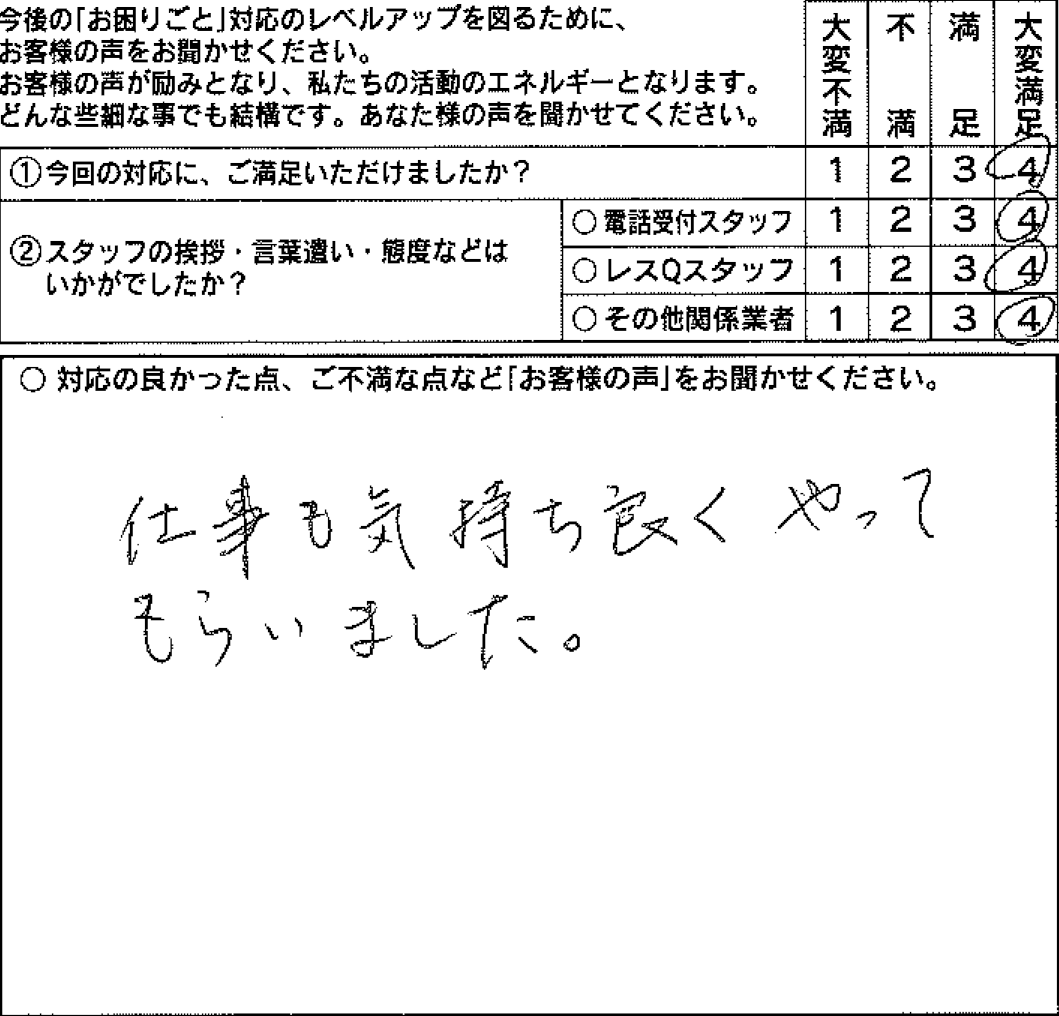 今後の「お困りごと」対応のレベルアップを図るために、
お客様の声をお聞かせください。
お客様の声が励みとなり、私たちの活動のエネルギーとなります。
どんな些細な事でも結構です。あなた様の声を聞かせてください。
大変不満 不満 満足 大変満足
①今回の対応に、ご満足いただけましたか？ 1 2 3 4
②スタッフの挨拶・言葉遣い・態度などは
いかがでしたか？
○電話受付スタッフ 1 2 3 4
○レスQスタッフ 1 2 3 4
○その他関係業者 1 2 3 4
○ 対応の良かった点、ご不満な点など「お客様の声」をお聞かせください。
仕事も気持ち良くやって
もらいました。